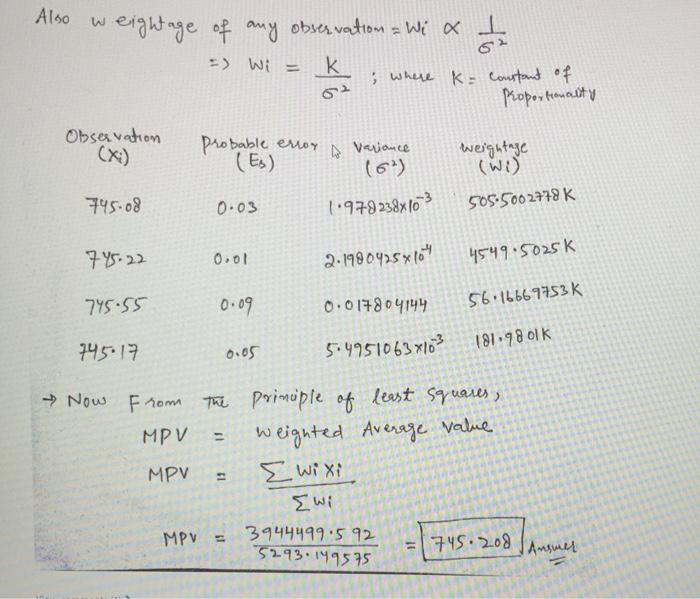 Also weightage of any observation = Wi ∝ 1/σ²
=> Wi = K/σ² ; where K = constant of proportionality
Observation (Xi) Probable error (Es) Variance (σ²) weightage (Wi)
745.08 0.03 1.978238x10⁻³ 505.5002778K
745.22 0.01 2.1980425x10⁻⁴ 4549.5025K
745.55 0.09 0.017804144 56.16669753K
745.17 0.05 5.4951063x10⁻³ 181.9801K
→ Now From The principle of least squares,
MPV = weighted Average value
MPV = Σ Wi Xi / Σ Wi
MPV = 3944499.592 / 5293.149575 = 745.208 Answer